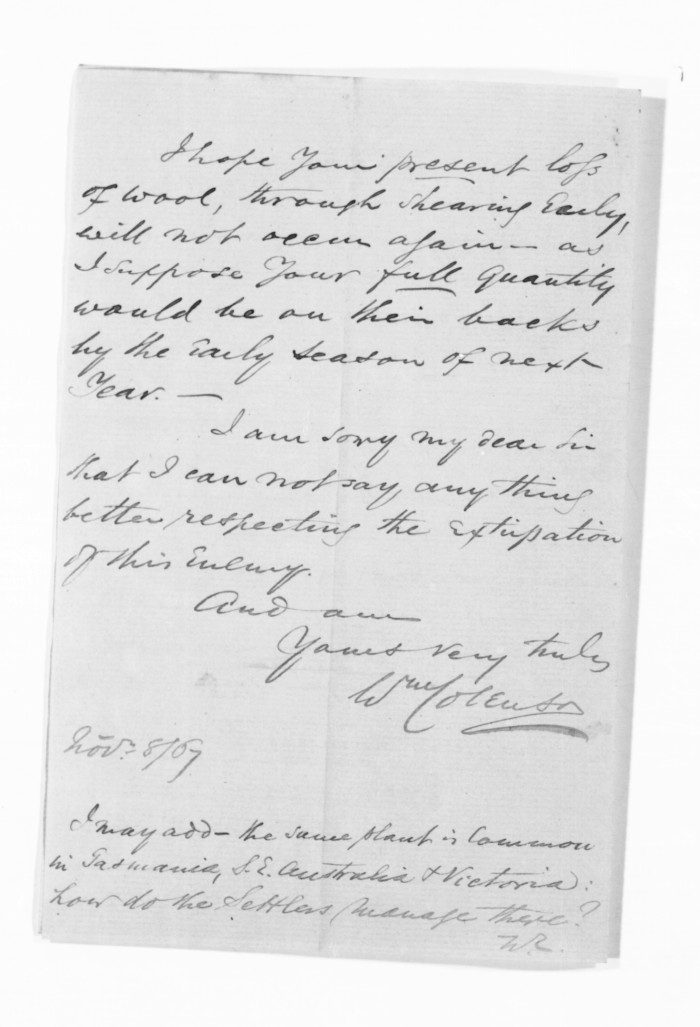 I hope Your present loss
of wool, through shearing Early,
will not occur again — as
I suppose Your full Quantity
would be on their backs
by the Early season of next
Year. —
I am sorry my dear Sir
that I can not say, any thing
better respecting the Extirpation
of this Enemy.
And am
Yours very truly
Wm Colenso
Novr. 8/69
I may add — the same plant is Common
in Tasmania, S.E. Australia & Victoria:
how do the Settlers manage there?
WC.